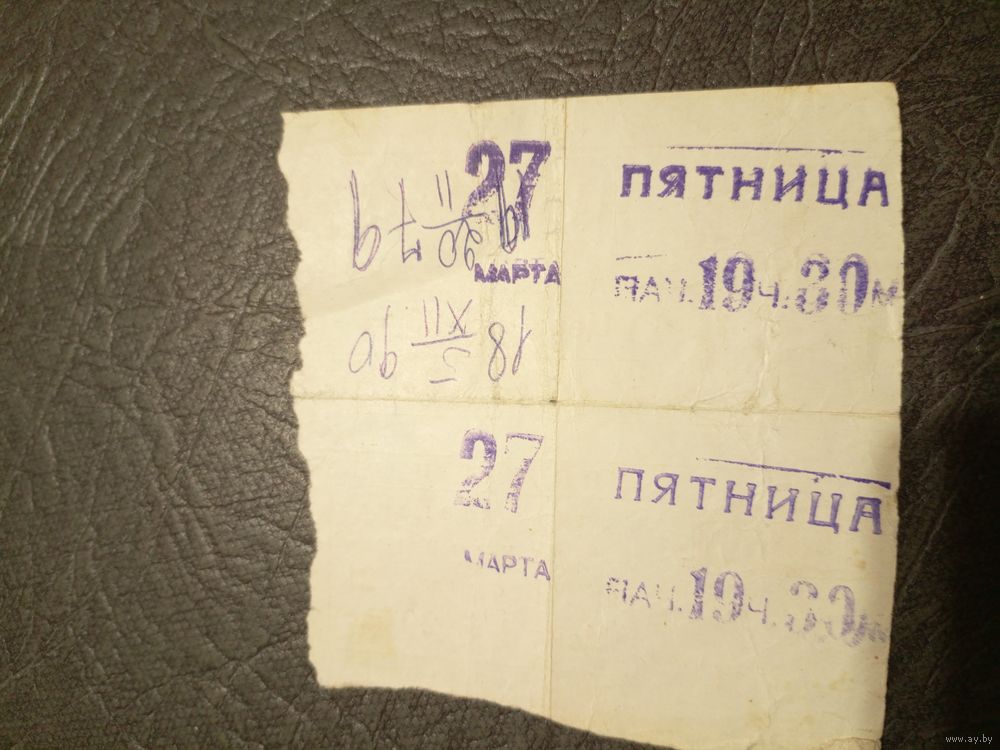 27
ПЯТНИЦА
МАРТА
НАЧ. 19 Ч. 30 М
18 5/XII 90
27
ПЯТНИЦА
МАРТА
НАЧ. 19 Ч. 30 М
www.ay.by